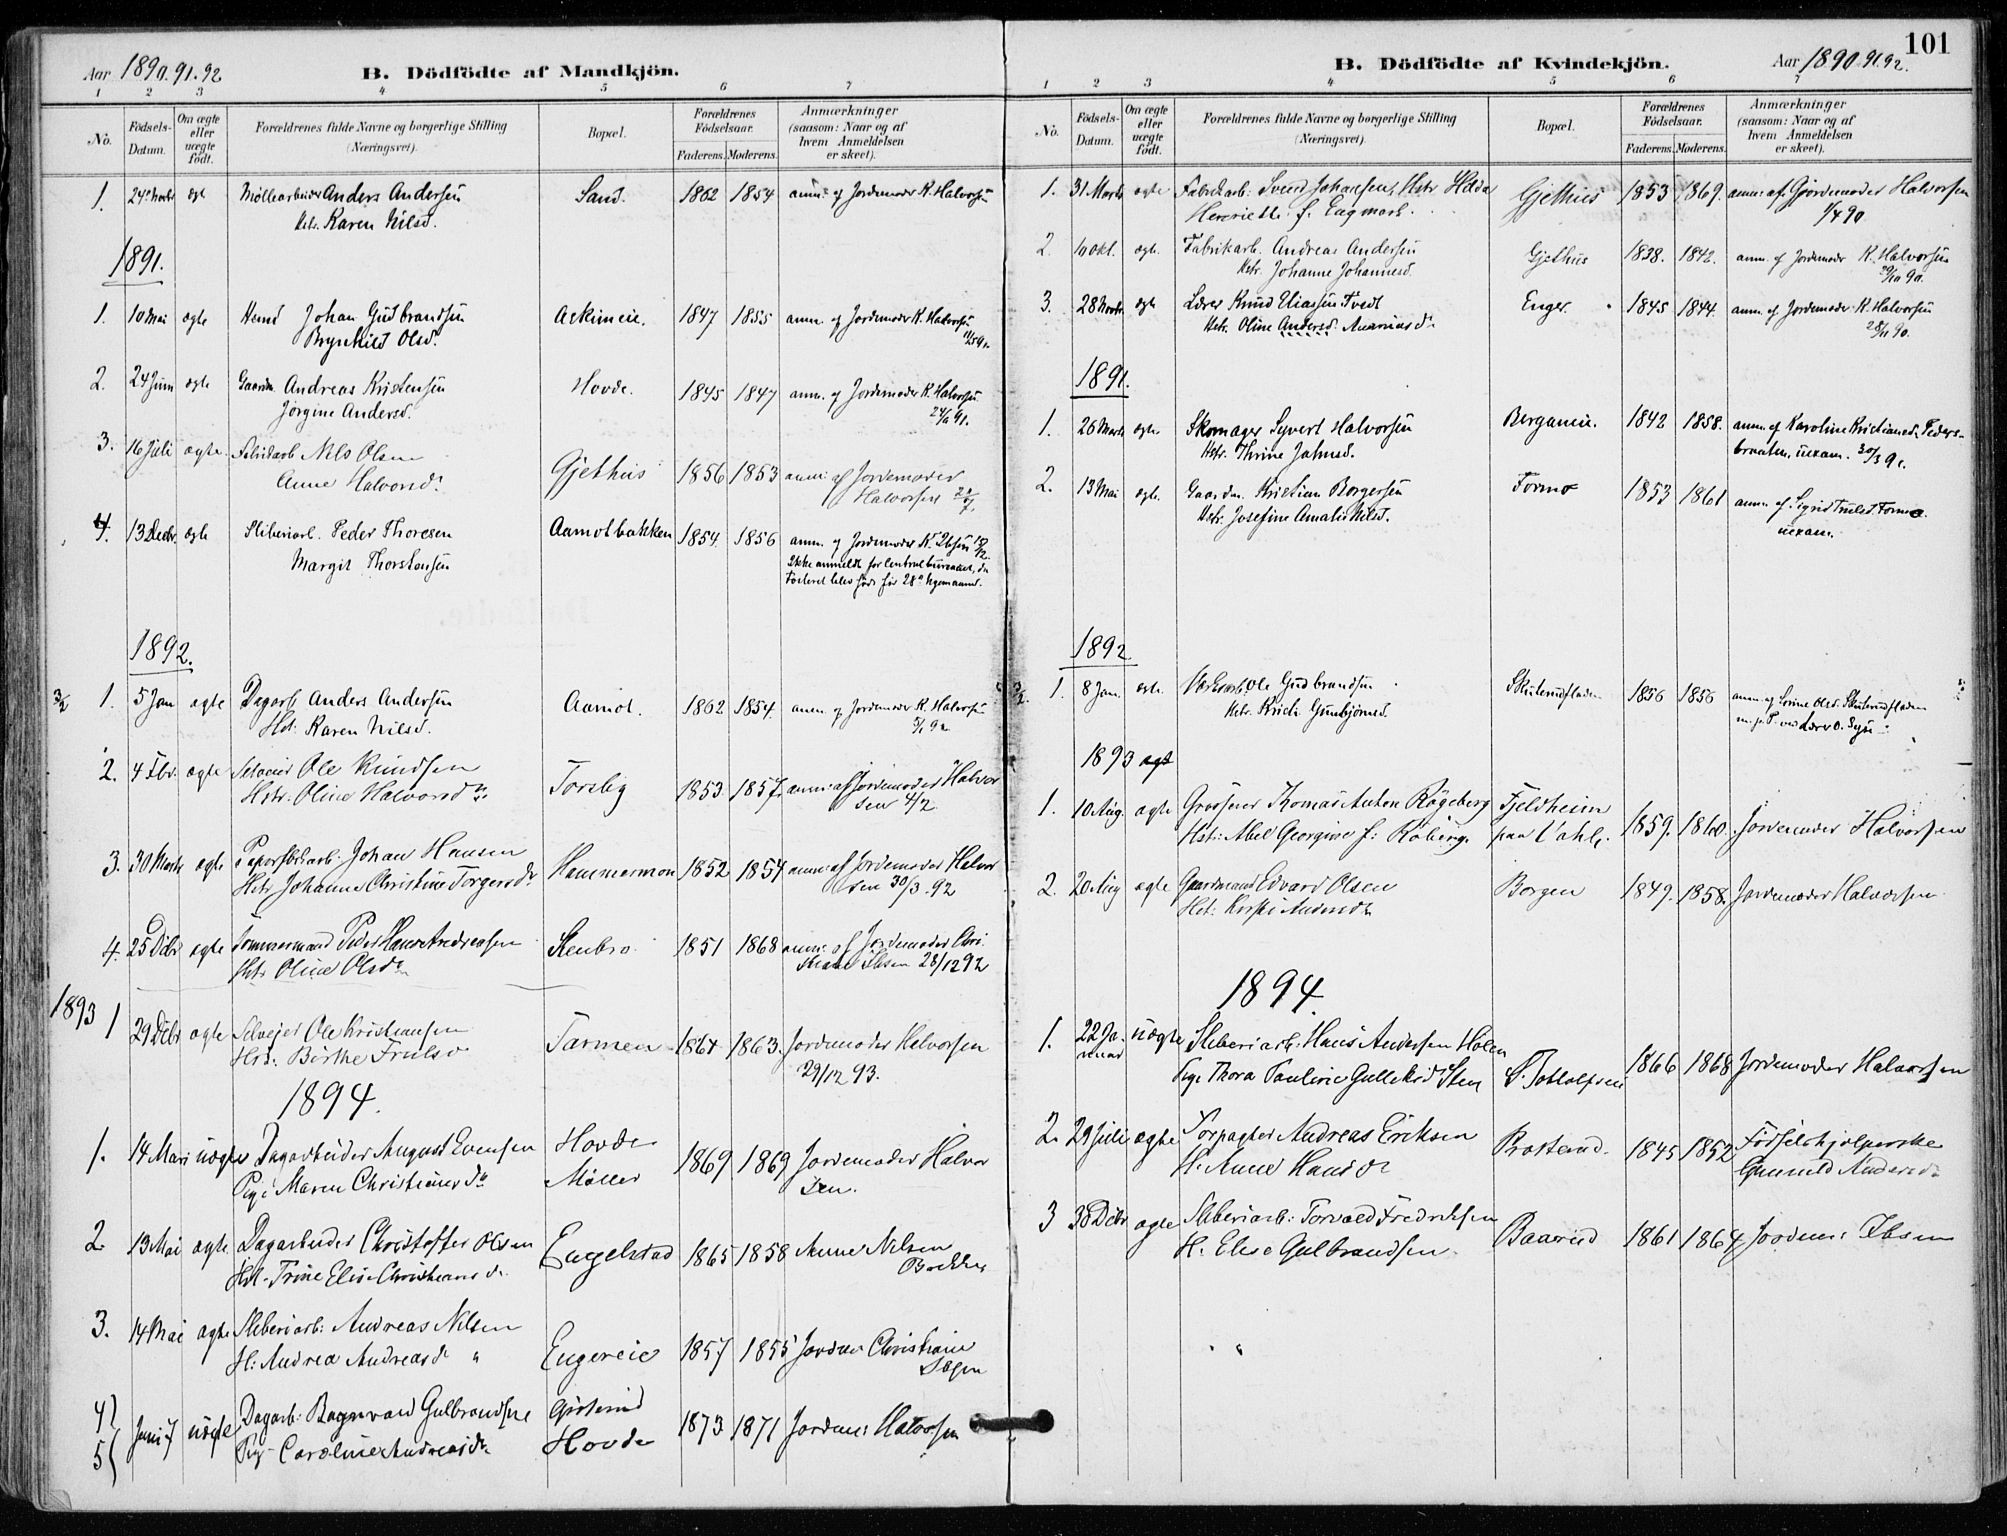 Aar 1890.91.92
B. Dödfödte af Mandkjön.
1 2 3 4 5 6 7
No.
Födsels-Datum.
Om ægte eller uægte födt.
Forældrenes fulde Navne og borgerlige Stilling
(Næringsvei).
Bopæl.
Forældrenes Födselsaar.
Faderens. Moderens.
Anmærkninger
(saasom: Naar og af
hvem Anmeldelsen
er skeet).
1. 24 Marts ægt Anders Andersen Sand. 1862 1854 anm. af Jordemoder K. Halvorsen
Hstr. Karen Nilsd.
1891.
1. 10 Mai ægte Johan Gudbrandsen 1847 1855 anm. af Jordemoder K. Halvorsen
Brynhild Olsd.
2. 24 Juni ægte Gaardm. Andreas Kristensen Hovde. 1845 1847 anm. af Jordemoder K. Halvorsen
Jørgine Andersd.
3. 16 Juli ægte Fabrikarb Nils Olsen Gjethus 1856 1853 anm: af Jordemoder
Anne Halvorsd. Halvorsen
4. 13 Decbr. ægte Sliberiarb. Peder Thoresen Aamotbakken 1854. 1856 anm. af Jordemoder
Margit Thorstensen Ikke anmeldt for Centralbureauet, da
Fosteret blev født før 28de Ugens
1892.
3/2 1. 5 Jan ægte Dagarb Anders Andersen Aamot. 1862 1854. anm. af Jordemoder K. Halvorsen
Hst: Karen Nilsd.
2. 4 Fbr. ægte Selveier Ole Knudsen Torsby 1853 1857 anm: af Jordemoder Halvor
Hstr: Oline Halvorsdtr. sen 4/2
3. 30 Marts ægte Johan Hansen Hammermoen 1852 1854 anm: af Jordemoder Halvor
Hstr Johanne Christine Torgersdr. sen 30/3.92
4. 25 Decbr ægte Tømmermand Peder Hans Andreassen Stenbro 1851 1868 anm: af Jordemoder Chri
Hstr Oline Olsdr Ibsen 28/12 92
1893 1 29 Decbr ægte Selvejer Ole Kristiansen 1864 1863. Jordemoder Halvorsen
Hst: Birthe Trulsd 29/12 93.
1894.
1. 14 Mars uægte Dagarbeider August Evensen Hovde 1869 1869 Jordemoder Halvor
Pige Maren Christiansdr Møller sen.
2 13 Mai ægte Dagarbeider Christoffer Olsen Engelstad 1865 1858 Anne Nilsen
Hst. Trine Elise Christiansd.
3. 14 Mai ægte Sliberiarb: Andreas Nilsen Engereie 1857 1855 Jordm Christiane
H: Andrea Andreasd " Ibsen
4} Juni 7 uægte Dagarb: Ragnvald Gulbrandsen 1873 1871 Jordem: Halvorsen
5{ Pige Caroline Andreasdr. Hovde
101
B. Dödfödte af Kvindekjön.
Aar 1890.91.92.
1 2 3 4 5 6 7
No.
Födsels-Datum.
Om ægte eller uægte födt.
Forældrenes fulde Navne og borgerlige Stilling
(Næringsvei).
Bopæl.
Forældrenes Födselsaar.
Faderens. Moderens.
Anmærkninger
(saasom: Naar og af
hvem Anmeldelsen
er skeet).
1. 31 Marts ægte Fabrikarb: Svend Johansen, Hstr Hilda Gjethus 1853 1869. anm: af Gjordemoder Halvorsen
Henriette f. Engmark. 1/4 90
2. 10 Okt. ægte. Fabrikarb. Andreas Andersen Gjethus 1838. 1842. anm. af Jordemoder K. Halvorsen
Hstr. Johanne Johannesd.
3. 28 ægte Lærer Knud Eliassen Tvedt Enger. 1845 1844. anm. af Jordemoder K. Halvorsen
Hstr. Oline Andersd.
1891.
1. 26 Marts ægte Skomager Syvert Halvorsen Berganeie. 1842 1858. anm. af Karoline Kristiansd. Peders-
Hstr. Thrine Johnsd. braaten, uexam. 30/3 91.
2. 13 Mai ægte. Gaardm. Kristian Borgersen Formo 1853 1861 anm. af Sigrid Trulsd. Formo.
Hstr. Josefine Amalie Nilsd. uexam.
1892
1. 8 Jan. ægte Ole Gudbrandsen Skuterudfladen 1856 1856 anm. af Olsd. Skuterudfladen
Hstr.
1893
1. 10 Aug. ægte Thomas Anton Røgeberg Fjeldheim 1859. 1860. Jordemoder Halvorsen
Hst: Abel Georgine f: Røberg paa Vahl.
2. 20 Aug ægte Gaardmand Edvard Olsen Borgen 1849. 1858. Jordemoder Halvorsen
Hst:
1894.
1. 22 Januar uægte Sliberiarb: Hans Andersen Holen 1866 1868 Jordemoder Halvorsen
Pige Thora Pauline Gulleksd Sten
2. 29 Juli ægte Forpagter Andreas Eriksen 1845 1852 Fødselshjælperske
H. Anne Hansdr Gunnild Andersd
3 30 Decbr ægte Sliberiarb: Torvald Fredriksen Baarud 1861 1864 Jordem: Ibsen
H. Elise Gulbrandsen